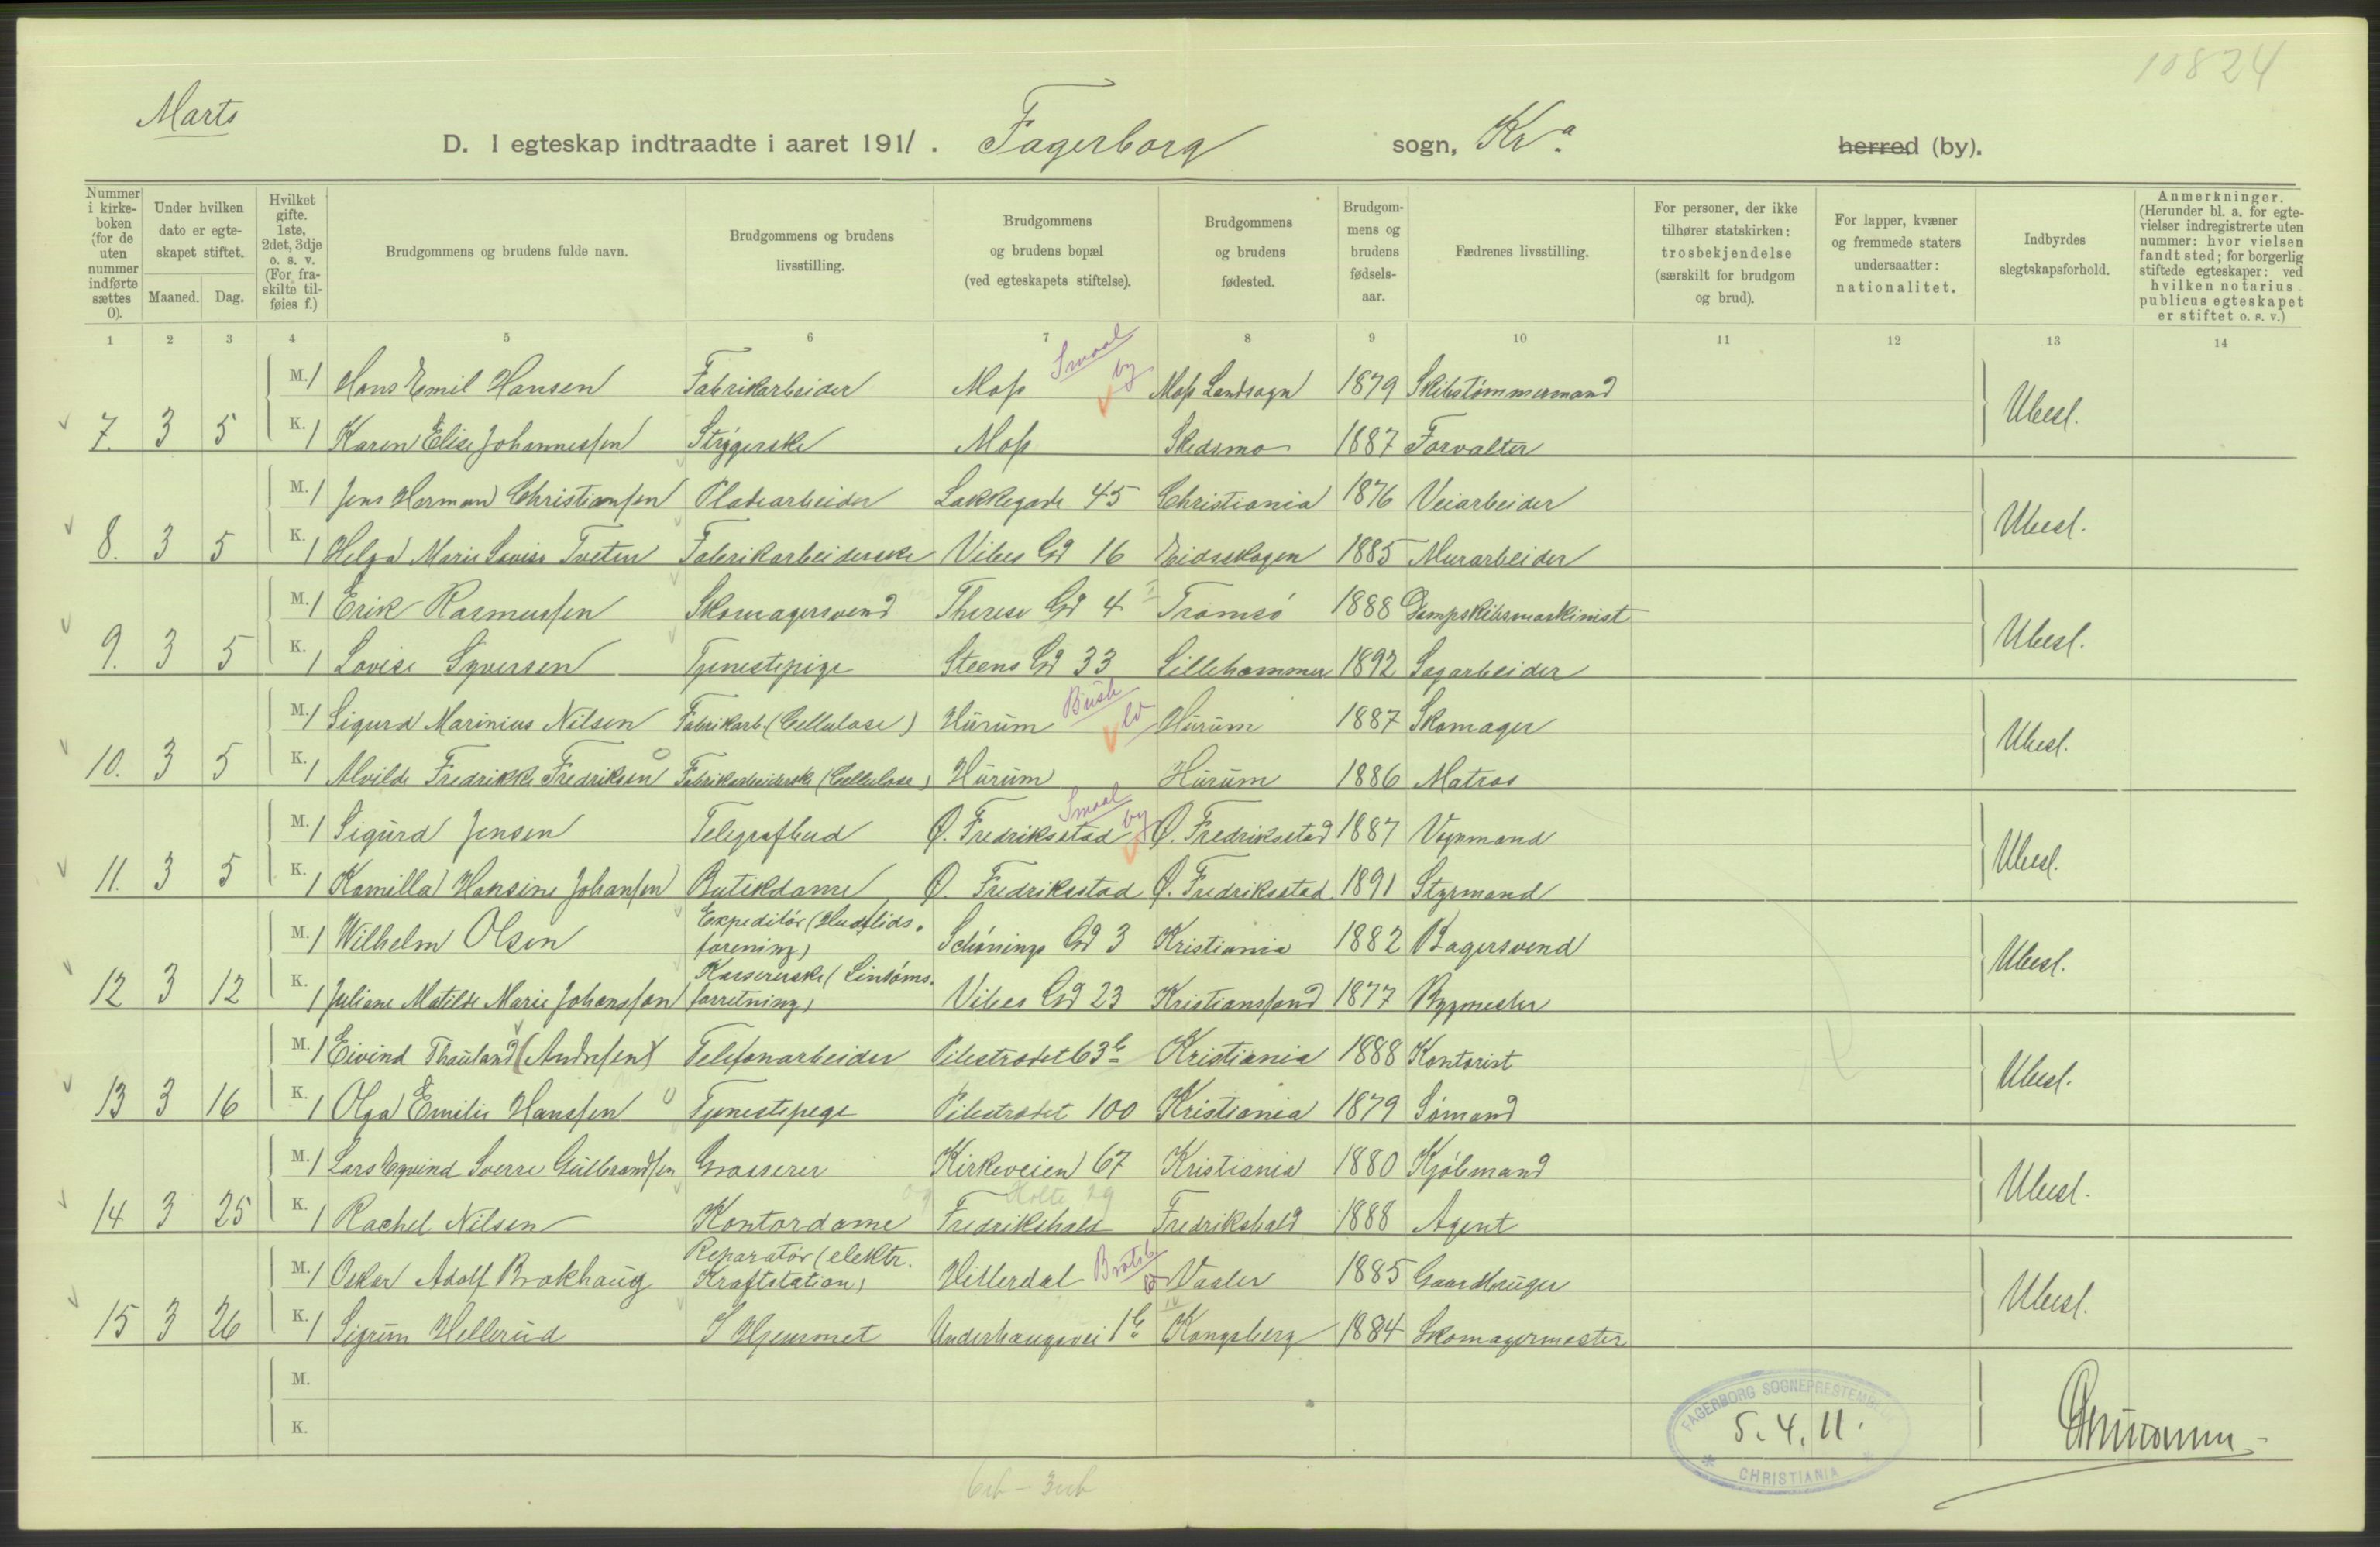 10824
Marts
D. I egteskap indtraadte i aaret 1911. Fagerborg sogn, Kr.a herred (by).
Nummer i kirkeboken (for de uten nummer indførte sættes 0).
Under hvilken dato er egteskapet stiftet. Maaned. Dag.
Hvilket gifte. 1ste, 2det, 3dje o. s. v. (For fraskilte tilføies f.)
Brudgommens og brudens fulde navn.
Brudgommens og brudens livsstilling.
Brudgommens og brudens bopæl (ved egteskapets stiftelse).
Brudgommens og brudens fødested.
Brudgommens og brudens fødselsaar.
Fædrenes livsstilling.
For personer, der ikke tilhører statskirken: trosbekjendelse (særskilt for brudgom og brud).
For lapper, kvæner og fremmede staters undersaatter: nationalitet.
Indbyrdes slegtskapsforhold.
Anmerkninger. (Herunder bl. a. for egtevielser indregistrerte uten nummer: hvor vielsen fandt sted; for borgerlig stiftede egteskaper: ved hvilken notarius publicus egteskapet er stiftet o. s. v.)
1 2 3 4 5 6 7 8 9 10 11 12 13 14
M. 1 Hans Emil Hansen Fabrikarbeider Moss Smaal by Moss Landsogn 1879 Skibstømmermand
7. 3 5 K. 1 Karen Elise Johannessen Strygerske Moss Skedsmo 1887 Forvalter Ubesl.
M. 1 Jens Herman Christiansen Pladearbeider Lakkegade 45 Christiania 1876 Veiarbeider
8. 3 5 K. 1 Helga Marie Lovise Tveten Fabrikarbeiderske Vibes Gd 16 Eidsskogen 1885 Murarbeider Ubesl.
M. 1 Erik Rasmussen Skomagersvend Therese Gd 4 Tromsø 1888 Dampskibsmaskinist
9. 3 5 K. 1 Lovise Syversen Tjenestepige Steens Gd 33 Lillehammer 1892 Sagarbeider Ubesl.
M. 1 Sigurd Marinius Nilsen Fabrikarb. (Cellulose) Hurum Busk ld Hurum 1887 Skomager
10. 3 5 K. 1 Alvilde Fredrikke Fredriksen Fabrikarbeiderske (Cellulose) Hurum Hurum 1886 Matros Ubesl.
M. 1 Sigurd Jensen Telegrafbud Ø. Fredriksstad Smaal by Ø. Fredriksstad 1887 Vognmand
11. 3 5 K. 1 Kamilla Hansine Johansen Butikdame Ø. Fredriksstad Ø. Fredriksstad 1891 Styrmand Ubesl.
M. 1 Wilhelm Olsen Expeditør (Husflidsforening) Schønings Gd 3 Kristiania 1882 Bagersvend
12 3 12 K. 1 Juliane Matilde Marie Johanssen Kassererske (Lintømsforretning) Vibes Gd 23 Kristianssand 1877 Bygmester Ubesl.
M. 1 Eivind Thauland (Andresen) Telefonarbeider Pilestrædet 63b Kristiania 1888 Kontorist
13 3 16 K. 1 Olga Emilie Hanssen Tjenestepige Pilestrædet 100 Kristiania 1879 Sømand Ubesl.
M. 1 Lars Eyvind Sverre Gulbrandsen Grosserer Kirkeveien 67 Kristiania 1880 Kjøbmand
Holte 29
14 3 25 K. 1 Rachel Nilsen Kontordame Fredrikshald Fredrikshald 1888 Agent Ubesl.
M. 1 Oskar Adolf Brokhaug Reparatør (elektr. Kraftstation) Hitterdal Bratsb. Vaaler 1885 Gaardbruger
15 3 26 K. 1 Sigrun Hellerud I Hjemmet Underhaugsvei 1b Kongsberg 1884 Skomagermester Ubesl.
M.
K.
FAGERBORG SOGNEPRESTEMBEDE
5. 4. 11.
CHRISTIANIA